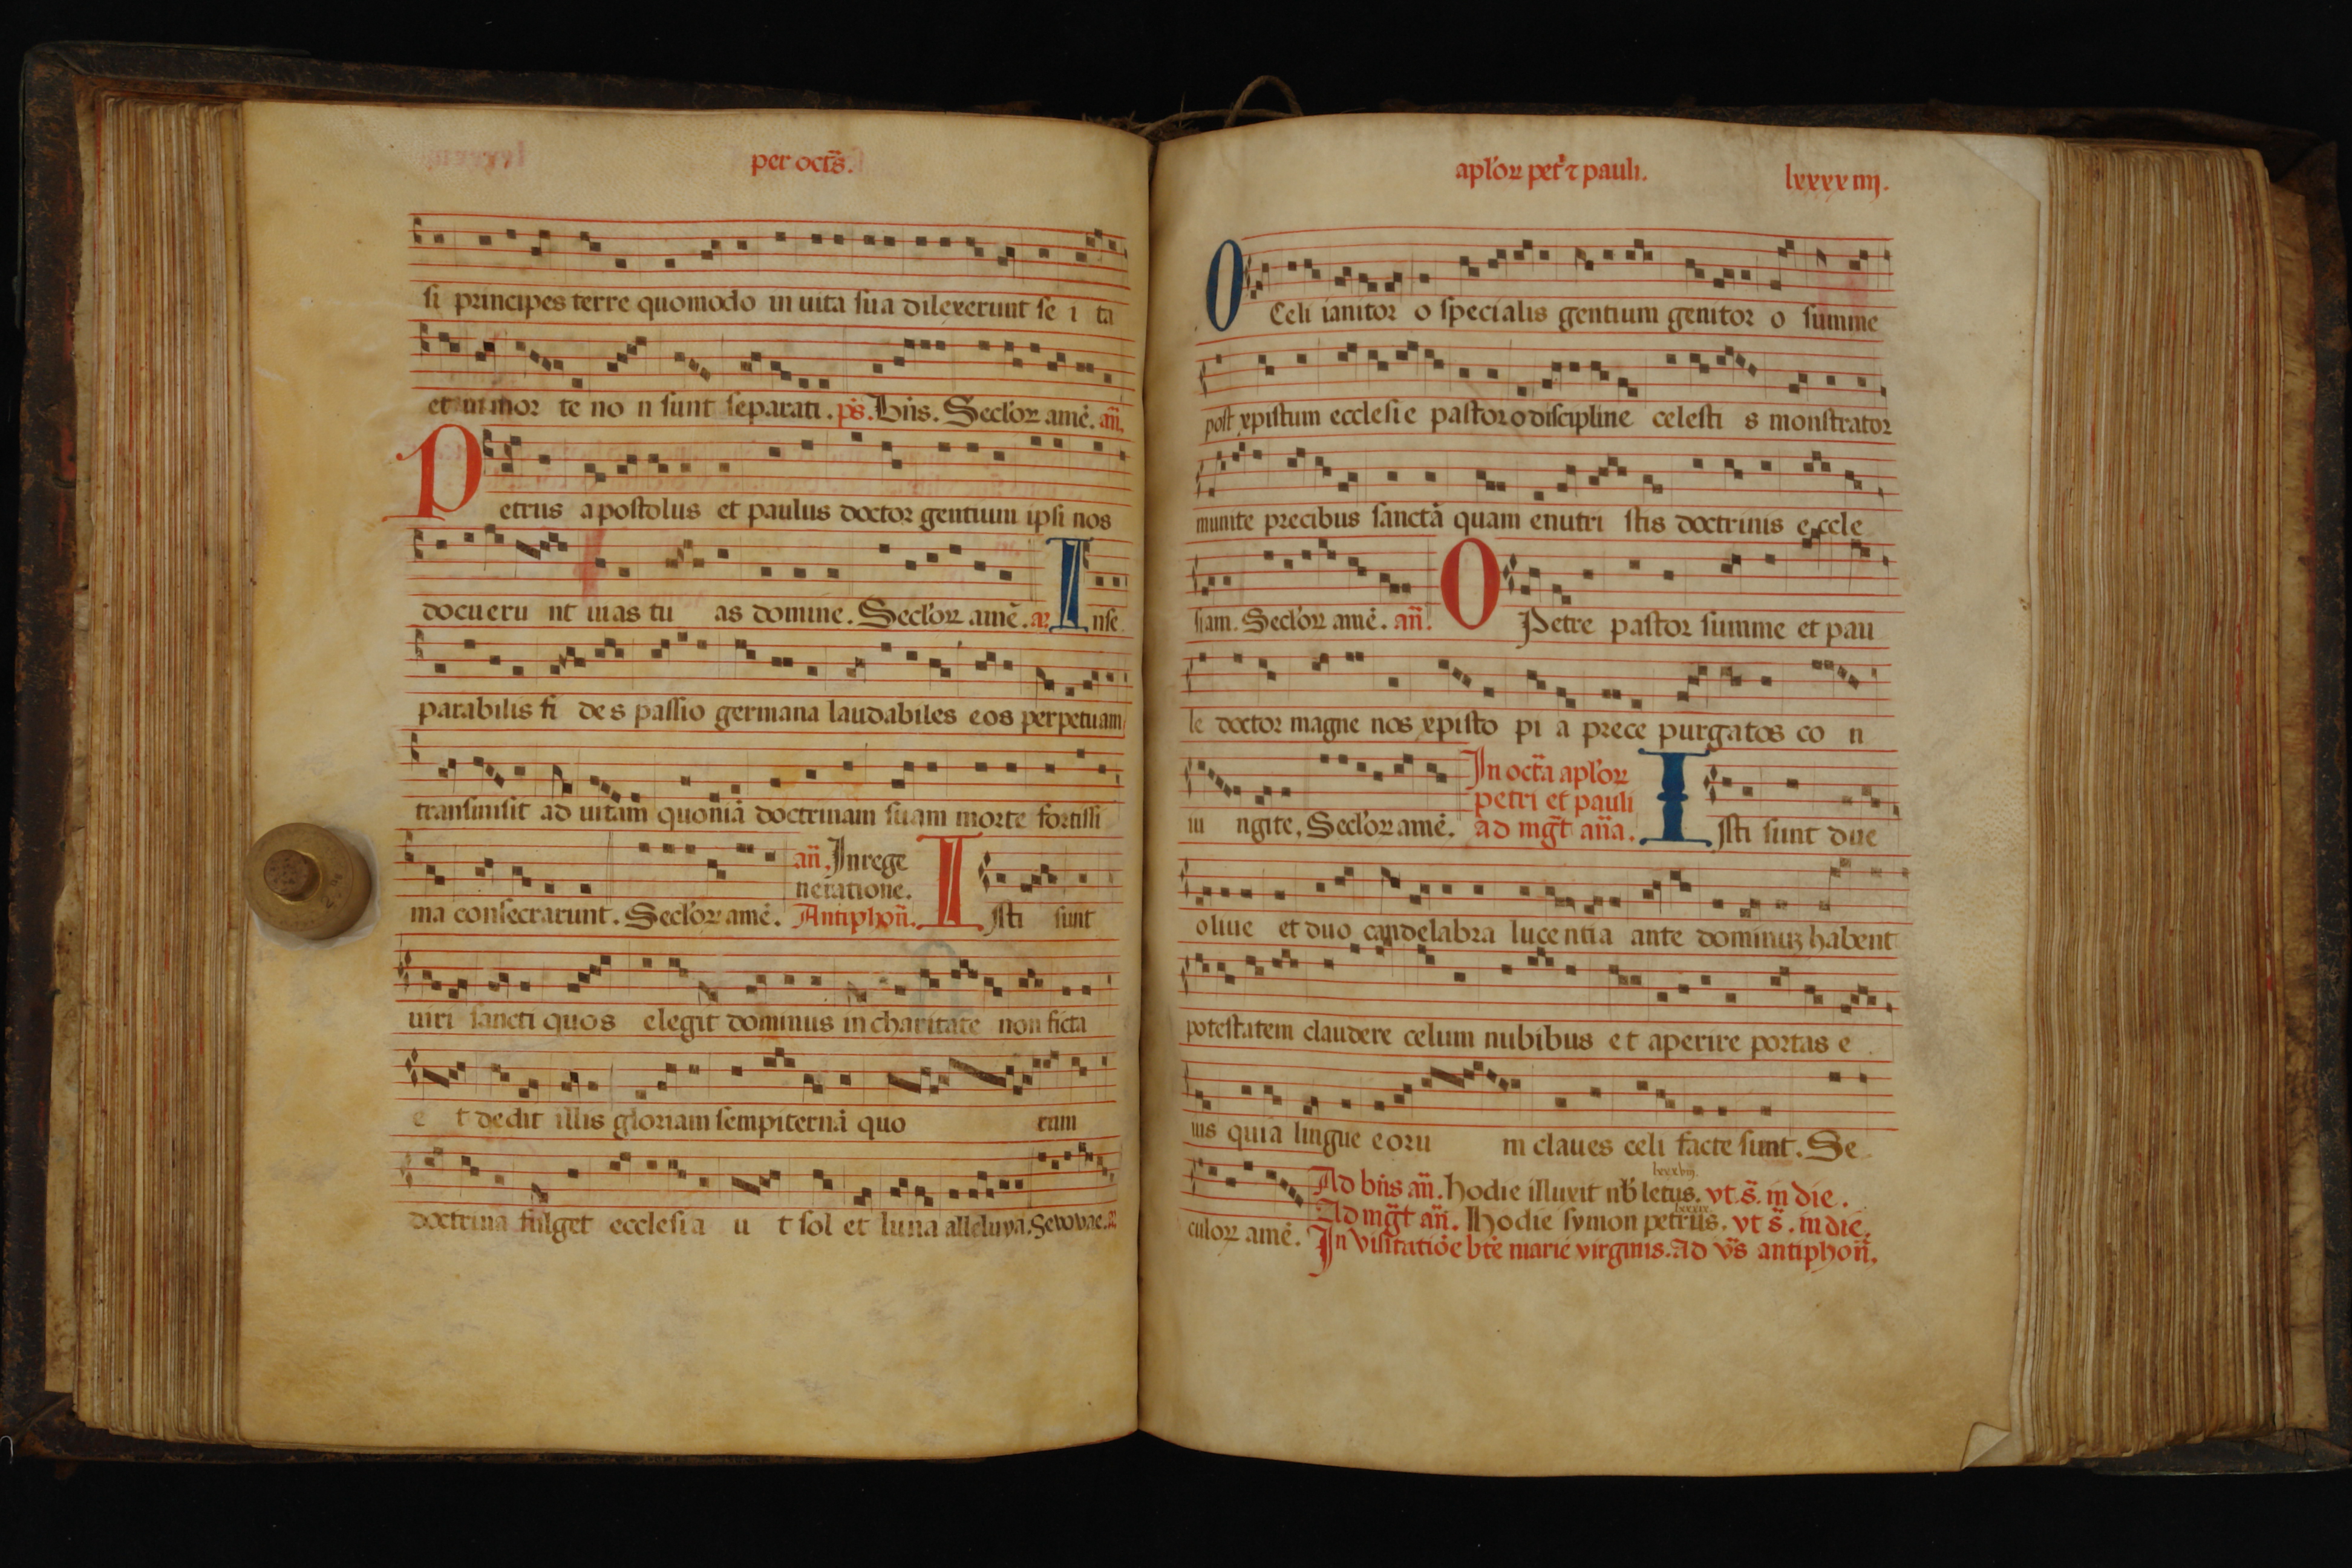 per octs̃.
si principes terre quomodo in uita sua dilexerunt se i ta
et in mor te no n sunt separati. ps̃. Bñs. Secloꝝ amẽ. añ.
Petrus apostolus et paulus doctor gentium ipsi nos
docueru nt uias tu as domine. Secloꝝ amẽ. Inse
parabilis fi des passio germana laudabiles eos perpetuam
transmisit ad uitam quoniã doctrinam suam morte fortissi
ma consecrarunt. Secloꝝ amẽ. añ. In rege
neratione.
Antiphoñ. Isti sunt
uiri sancti quos elegit dominus in charitate non ficta
e t dedit illis gloriam sempiternã quo rum
doctrina fulget ecclesia u t sol et luna alleluya. Sevovae.
aploꝝ pet' ⁊ pauli. lxxxxiiij.
O Celi ianitor o specialis gentium genitor o summe
post xpistum ecclesie pastor o discipline celesti s monstrator
munite precibus sanctã quam enutri stis doctrinis e ccle
siam. Secloꝝ amẽ. añ. O Petre pastor summe et pau
le doctor magne nos xpisto pi a prece purgatos co n
iu ngite, Secloꝝ amẽ. In octã aploꝝ
petri et pauli
ad mg̃t aña. Isti sunt due
oliue et duo candelabra lucentia ante dominuꝫ habent
potestatem claudere celum nubibus et aperire portas e
ius quia lingue eoru m claues celi facte sunt. Se
culoꝝ amẽ. Ad bñs añ. Hodie illuxit nb̃ letus. vt. s̃. in die.
Ad mg̃t añ. Hodie symon petrus. vt s̃. in die.
In visitatiõe btẽ marie virginis. Ad vs̃ antiphoñ.